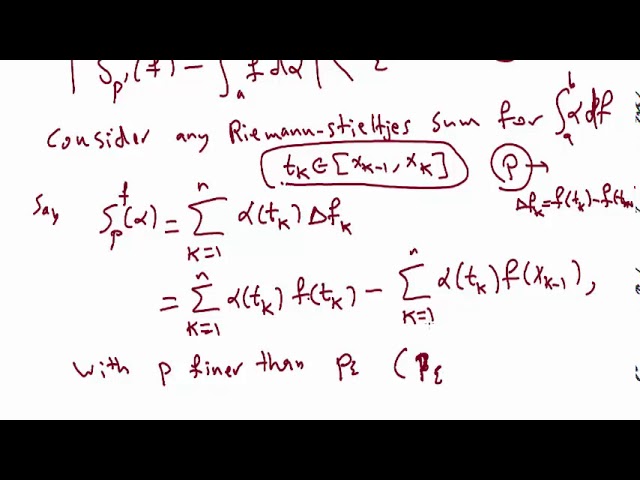 | S_p'(f) − ∫_a f dα | < ε
Consider any Riemann-stieltjes sum for ∫_a^b α df
t_k ∈ [x_{k-1}, x_k] P →
Δf_k = f(t_k) − f(t
Say S_p^f(α) = Σ_{k=1}^n α(t_k) Δf_k
= Σ_{k=1}^n α(t_k) f(t_k) − Σ_{k=1}^n α(t_k) f(x_{k-1}),
with p finer than p_ε (p_ε